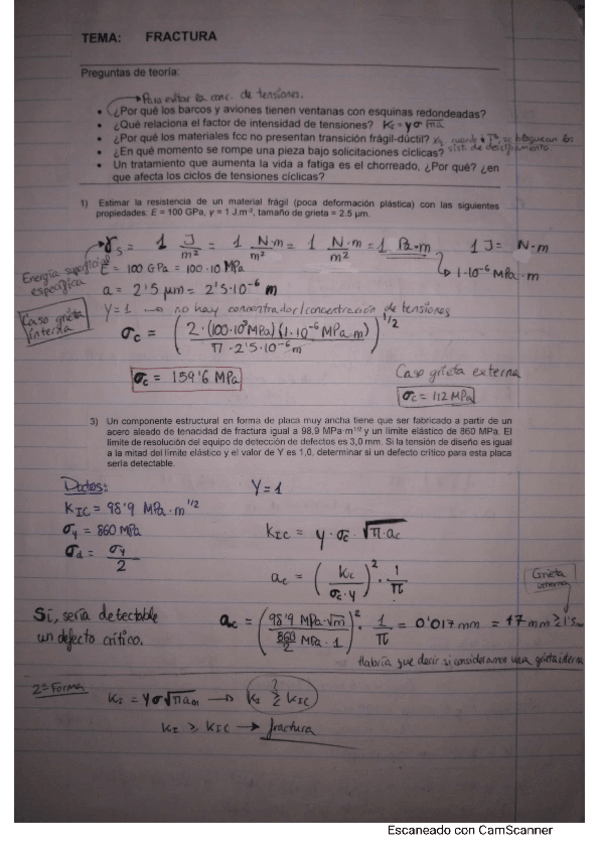 TEMA: FRACTURA
Preguntas de teoría:
Para evitar la conc. de tensiones.
• ¿Por qué los barcos y aviones tienen ventanas con esquinas redondeadas?
• ¿Qué relaciona el factor de intensidad de tensiones? K = yσ√πa
• ¿Por qué los materiales fcc no presentan transición frágil-dúctil?
• ¿En qué momento se rompe una pieza bajo solicitaciones cíclicas?
• Un tratamiento que aumenta la vida a fatiga es el chorreado, ¿Por qué? ¿en
que afecta los ciclos de tensiones cíclicas?
1) Estimar la resistencia de un material frágil (poca deformación plástica) con las siguientes
propiedades: E = 100 GPa, γ = 1 J.m⁻², tamaño de grieta = 2.5 µm.
γs = 1 J/m² = 1 N·m/m² = 1 N·m/m² = 1 Pa·m 1 J = N·m
1·10⁻⁶ MPa·m
Energía superficial
específica
E = 100 GPa = 100·10³ MPa
a = 2'5 µm = 2'5·10⁻⁶ m
Y = 1 → no hay concentrador/concentración de tensiones
Caso grieta
interna
σc = (2·(100·10³ MPa)(1·10⁻⁶ MPa·m) / π·2'5·10⁻⁶ m)^1/2
σc = 159'6 MPa
Caso grieta externa
σc = 112 MPa
3) Un componente estructural en forma de placa muy ancha tiene que ser fabricado a partir de un
acero aleado de tenacidad de fractura igual a 98,9 MPa·m¹ᐟ² y un límite elástico de 860 MPa. El
límite de resolución del equipo de detección de defectos es 3,0 mm. Si la tensión de diseño es igual
a la mitad del límite elástico y el valor de Y es 1,0, determinar si un defecto crítico para esta placa
sería detectable.
Datos: Y = 1
KIC = 98'9 MPa·m^1/2
σy = 860 MPa
σd = σy/2
KIC = y·σc·√π·ac
ac = (Kc/σc·y)²·1/π
Grieta
interna
Sí, sería detectable
un defecto crítico.
ac = (98'9 MPa·√m / 860/2 MPa·1)²·1/π = 0'017 mm = 17 mm ≥ 1'5
Habría que decir si consideramos una grieta interna
2ª Forma KI = yσ√πam → KI ≥? KIC
KI ≥ KIC → fractura
Escaneado con CamScanner